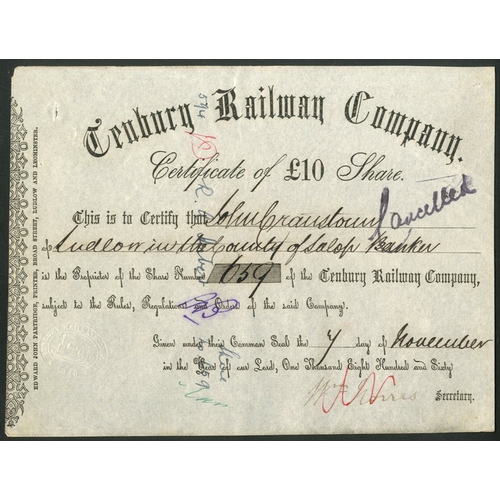 Tenbury Railway Company.
Certificate of £10 Share.
Cancelled
This is to Certify that John Cranstoun
of Ludlow in the County of Salop Banker
is the Proprietor of the Share Number 659 of the Tenbury Railway Company,
subject to the Rules, Regulations and Orders of the said Company.
Given under their Common Seal the 7 day of November
in the Year of our Lord, One Thousand Eight Hundred and Sixty
Secretary.
EDWARD JOHN PARTRIDGE, PRINTER, BROAD STREET, LUDLOW AND LEOMINSTER.
574